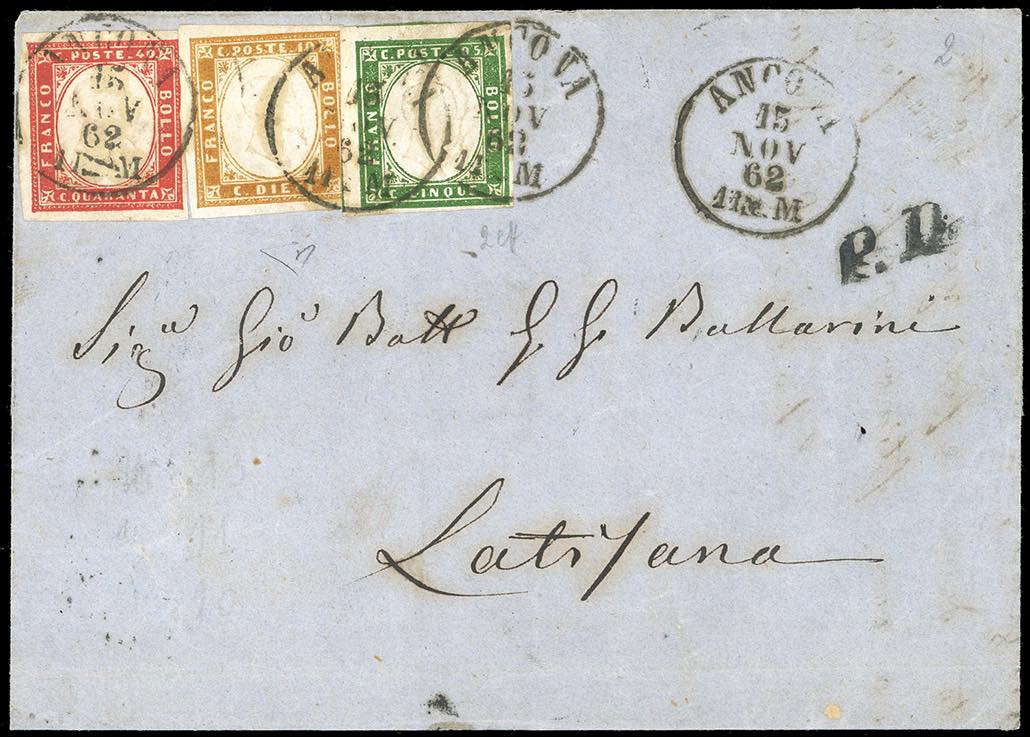 C. POSTE. 40
FRANCO
BOLLO
C. QUARANTA
C. POSTE. 10
FRANCO
BOLLO
C. DIE
C. POSTE. 05
FRANCO
BOLLO
CINQUE
ANCONA
15
NOV
62
11 M
ANCONA
15
NOV
62
11 M
ANCONA
15
NOV
62
11 M
P. D.
2
Sig Gio Batt G. G. Ballarini
Latisana